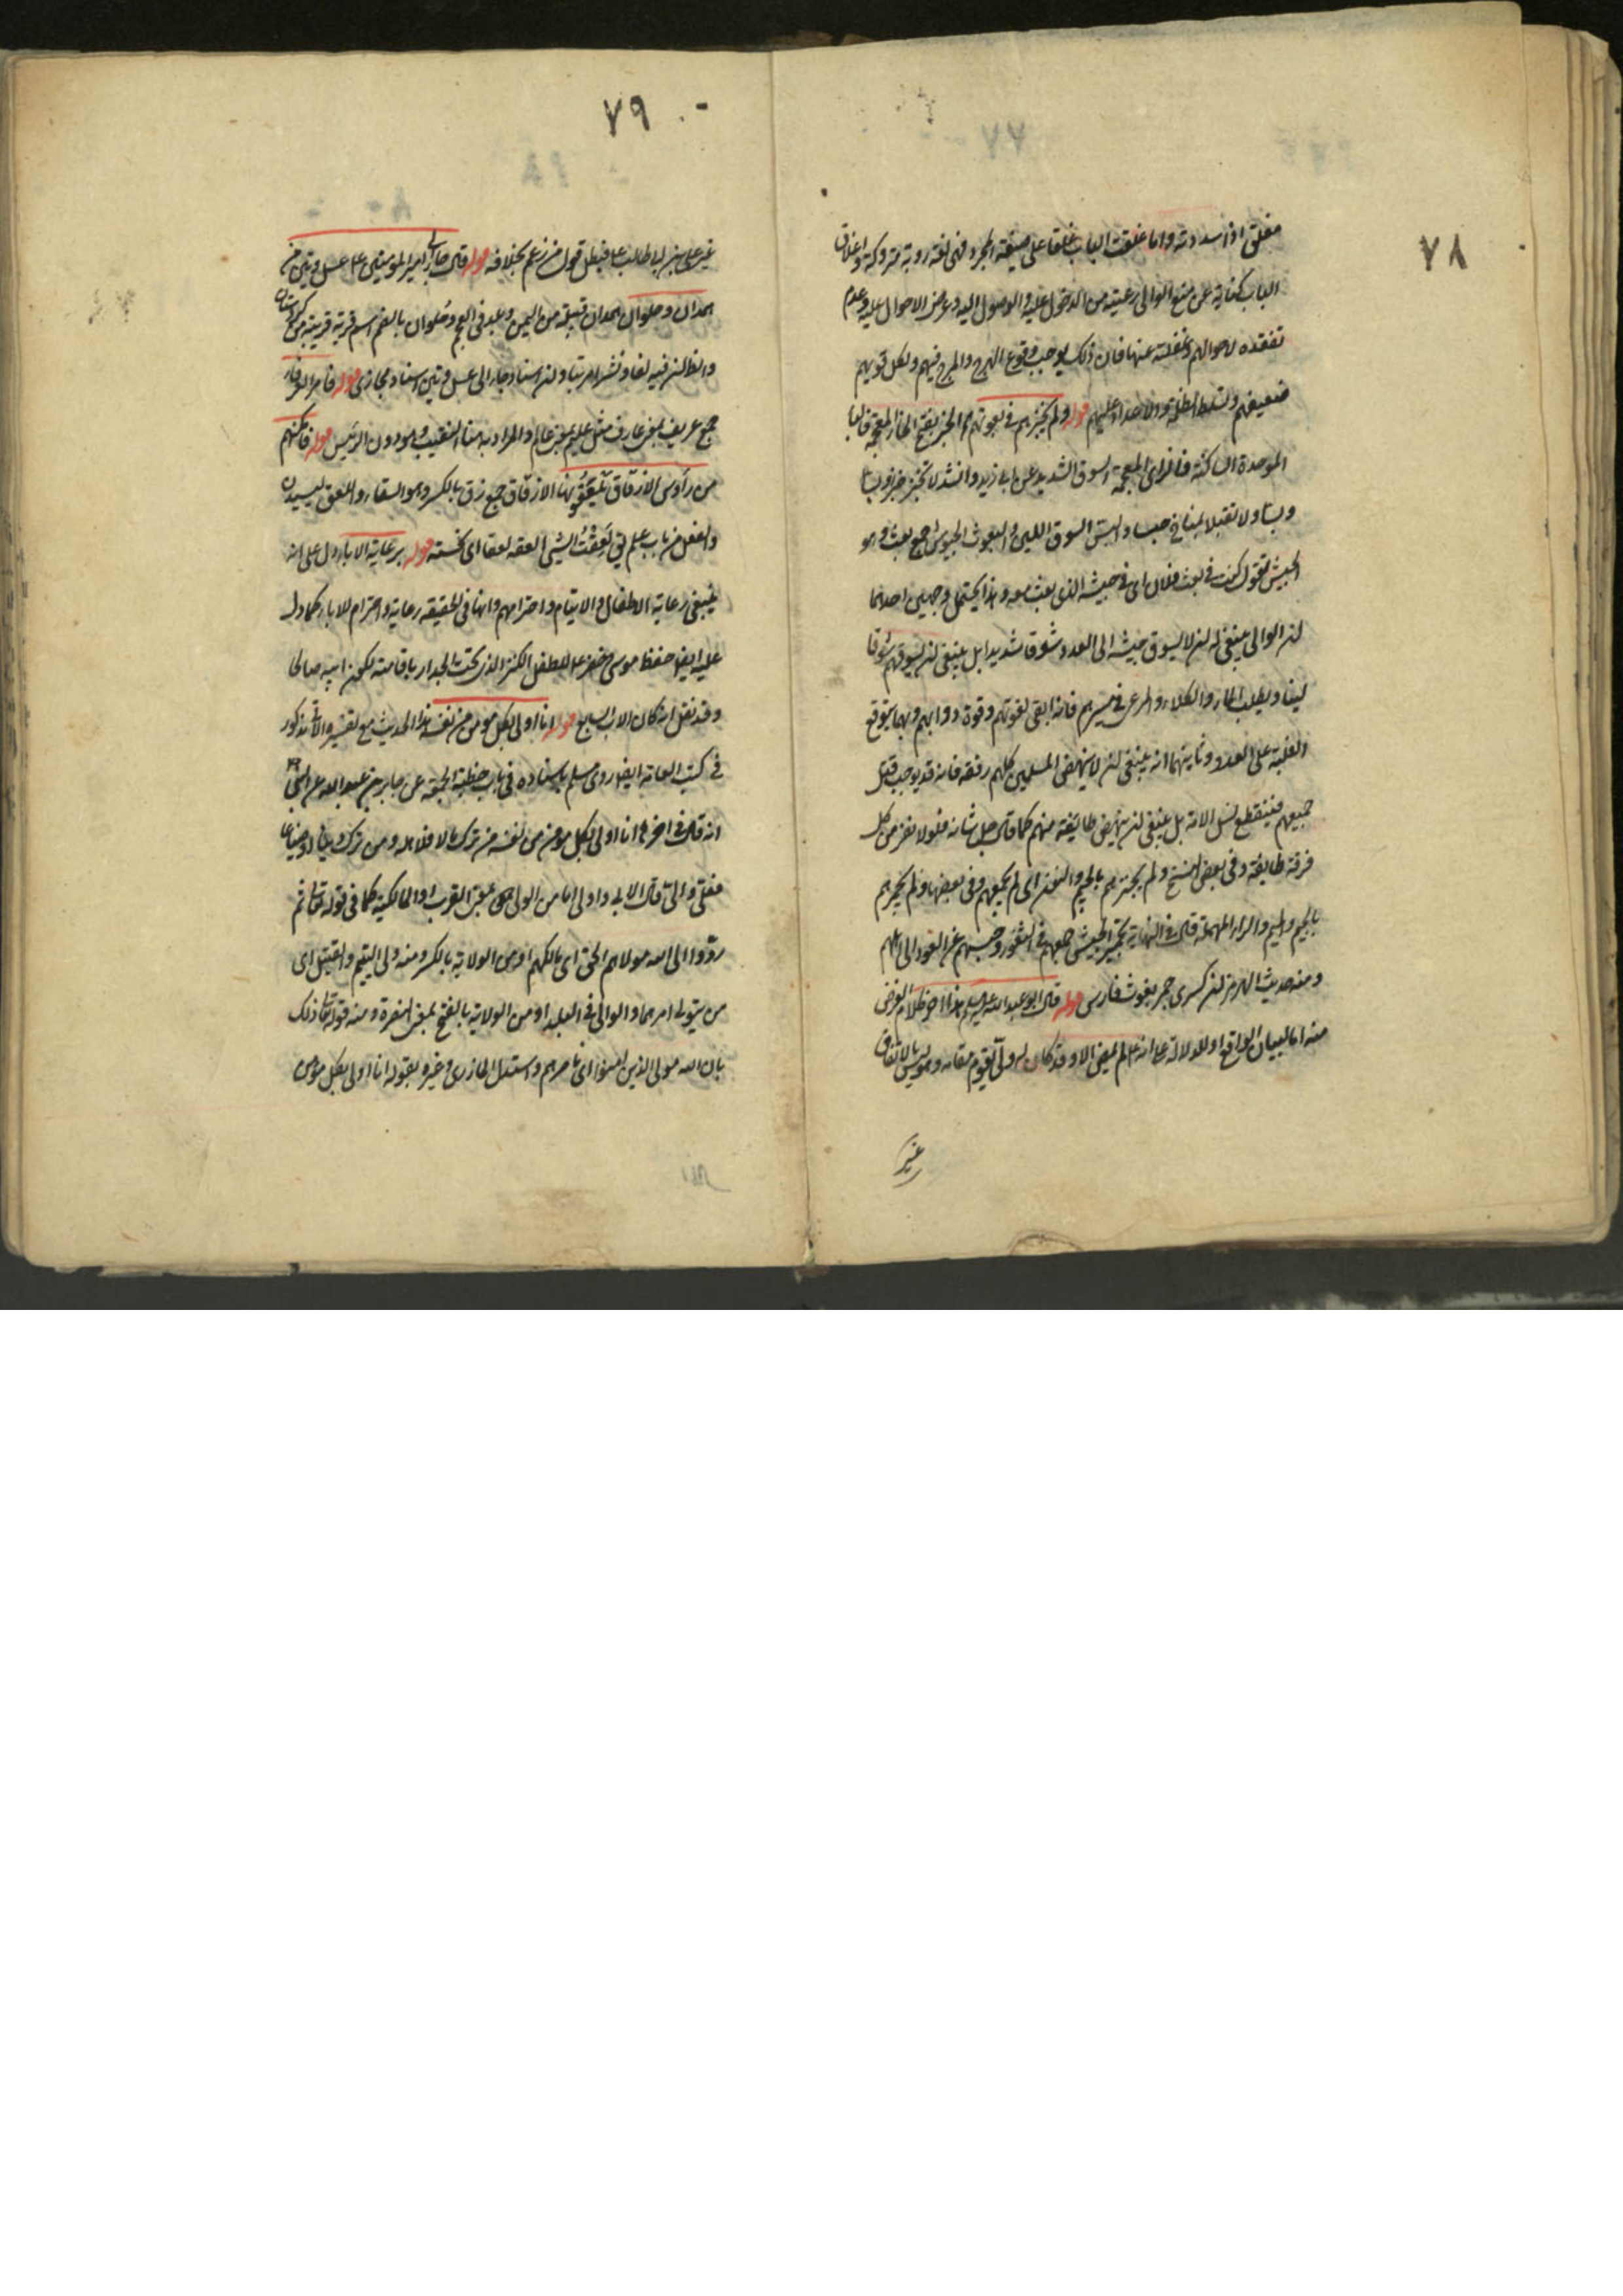 ٧٨
مغلق اذا سددته واما غلقت الباب غلقا على صيغة المجرد فهى لغة روية متروكة واغلاق
الباب كناية عن منع الوالى رعيته من الدخول عليه والوصول اليه وعرض الاحوال عليه وعدم
تفقده لاحوالهم وغفلته عنها فان ذلك يوجب وقوع الهرج والمرج فيهم ولكل قويهم
ضعيفهم وتسلط الظلمة والاعداء عليهم قوله ولم يخبزهم فى بعوثهم الخبز بفتح الخاء المعجمة فالباء
الموحدة الساكنة فالزاى المعجمة السوق الشديد عن ابى زيد وانشد لا تخبزا خبزا وبسا
وبسا ولا تطيلا بمناخ حبسا والبس السوق اللين والبعوث الجيوش جمع بعث وهو
الجيش تقول كنت فى بعث فلان اى فى جيشه الذى بعث معه وهذا يحتمل وجهين احدهما
ان الوالى ينبغى له ان لا يسوق جيشه الى العدو سوقا شديدا بل ينبغى ان يسوقهم سوقا
لينا ويطلب الماء والكلاء والمرعى فى مسيرهم فانه ابقى لقوتهم وقوة دوابهم وبهما يتوقع
الغلبة على العدو وثانيهما انه ينبغى ان لا ينهض المسلمين كلهم دفعة فانه قد يوجب قتل
جميعهم فينقطع نسل الامة بل ينبغى ان ينهض طائفة منهم كما قال جل شانه فلولا نفر من كل
فرقة طايفة وفى بعض النسخ ولم يجنزهم بالجيم والنون اى لم يجمعهم وفى بعضها ولم يجمرهم
بالجيم والميم والراء المهملة قال فى النهاية تجمير الجيش جمعهم فى الثغور وحبسهم عن العود الى اهلهم
ومنه حديث الهرمزان كسرى جمر بعوث فارس قوله قال ابو عبد الله عليه السلم هذا اخر كلام الغرض
منه اما لبيان الواقع او للدلالة على انه لم يمض الا وقد كان له ولى يقوم مقامه وهو ليس بالاتفاق
غير
٧٩
غير على بن ابى طالب ع فبطل قول من زعم بخلافه قوله قال جاء الى امير المؤمنين ع عسل وتين من
همدان وحلوان همدان قبيلة من اليمن وبلد فى العجم وحلوان بالضم اسم قرية قريبة من كردستان
والظ ان فيه لفا ونشرا مرتبا وان اسناد جاء الى عسل وتين اسناد مجازى قوله فامر العرفاء
جمع عريف بمعنى عارف مثل عليم بمعنى عالم والمراد به هنا النقيب وهو دون الرئيس قوله فامكنهم
من رؤس الازقاق يلعقونها الازقاق جمع زق بالكسر وهو السقاء واللعق ليسيدن
والفعل من باب علم تق لعقت الشيئ العقه لعقا اى لحسته قوله برعاية الاباء دل على انه
ينبغى رعاية الاطفال والايتام واحترامهم وانها فى الحقيقة رعاية واحترام للاباء كما دل
عليه ايضا حفظ موسى وخضر ع للطفل الكنز الذى تحت الجدار باقامته لكون ابيه صالحا
وقد نقل انه كان الاب السابع قوله انا اولى بكل مومن من نفسه هذا الحديث مع تفسيره الاتى مذكور
فى كتب العامة ايضا روى مسلم باسناده فى باب خطبة الجمعة عن جابر بن عبد الله عن النبى ص
انه قال فى اخرها انا اولى بكل مومن من نفسه من ترك مالا فلاهله ومن ترك دينا او ضياعا
فعلى والى قال الابى واولى اما من الولى بمعنى القرب او المالكية كما فى قوله تعالى ثم
ردوا الى الله مولاهم الحق اى مالكهم او من الولاية بالكسر ومنه ولى اليتيم والقتيل اى
من يتولى امرهما والوالى فى البلد او من الولاية بالفتح بمعنى النصرة ومنه قوله تعالى ذلك
بان الله مولى الذين امنوا اى ناصرهم واستدل المازرى وغيره بقوله انا اولى بكل مؤمن